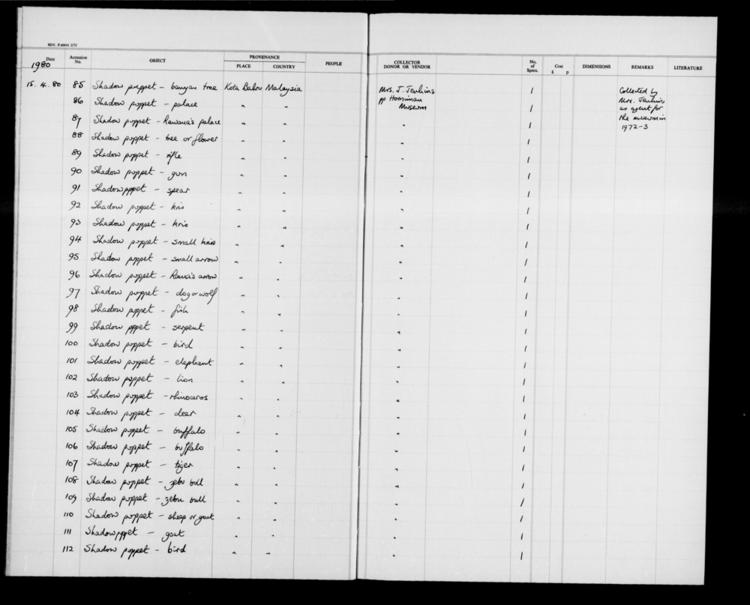 Date Accession No. OBJECT PROVENANCE PLACE COUNTRY PEOPLE COLLECTOR DONOR OR VENDOR No. of Spms. Cost £ p DIMENSIONS REMARKS LITERATURE
1980
15.4.80 85 Shadow puppet - banyan tree Kota Bahru Malaysia Mrs. J. Jenkins 1 Collected by
86 Shadow puppet - palace " " pp Horniman Museum 1 Mrs. Jenkins
87 Shadow puppet - Rawana's palace " " " 1 as agent for the museum in
88 Shadow puppet - tree or flower " " " 1 1972-3
89 Shadow puppet - rifle " " " 1
90 Shadow puppet - gun " " " 1
91 Shadow puppet - spear " " " 1
92 Shadow puppet - kris " " " 1
93 Shadow puppet - kris " " " 1
94 Shadow puppet - small kris " " " 1
95 Shadow puppet - small arrow " " " 1
96 Shadow puppet - arrow " " " 1
97 Shadow puppet - dog or wolf " " " 1
98 Shadow puppet - fish " " " 1
99 Shadow puppet - serpent " " " 1
100 Shadow puppet - bird " " " 1
101 Shadow puppet - elephant " " " 1
102 Shadow puppet - lion " " " 1
103 Shadow puppet - rhinoceros " " " 1
104 Shadow puppet - deer " " " 1
105 Shadow puppet - buffalo " " " 1
106 Shadow puppet - buffalo " " " 1
107 Shadow puppet - tiger " " " 1
108 Shadow puppet - zebu bull " " " 1
109 Shadow puppet - zebu bull " " " 1
110 Shadow puppet - sheep or goat " " " 1
111 Shadow puppet - goat " " " 1
112 Shadow puppet - bird " " " 1